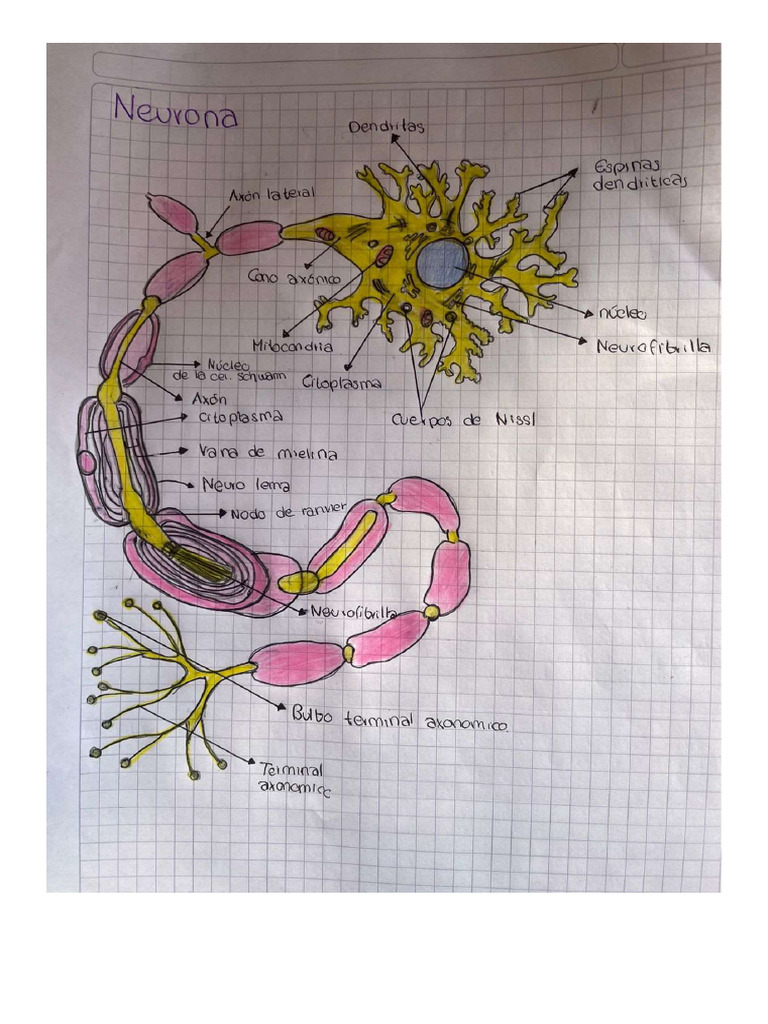 Neurona
Dendritas
Espinas
dendriticas
Axón lateral
Cono axónico
núcleo
Mitocondria
Neurofibrilla
Núcleo
de la cel. Schwann
Citoplasma
Axón
Citoplasma
Cuerpos de Nissl
Vana de mielina
Neuro lema
Nodo de ranvier
Neurofibrilla
Bulbo terminal axonomico.
Terminal
axonomice